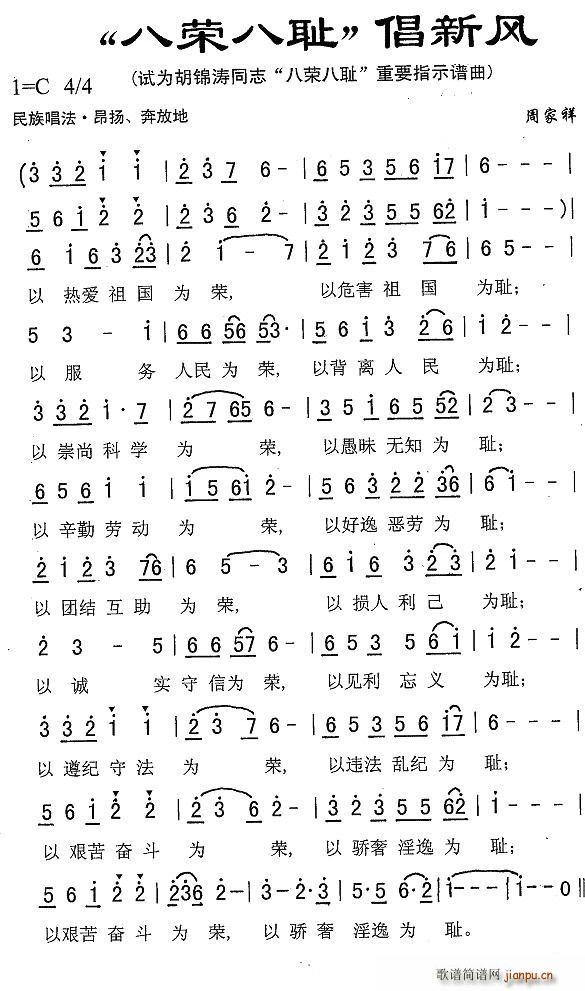 “八荣八耻”倡新风
(试为胡锦涛同志“八荣八耻”重要指示谱曲)
1=C 4/4
民族唱法·昂扬、奔放地
周家祥
(3 3 2 1 1 | 2 3 7 6 - | 6 5 3 5 6 17 | 6 - - - |
5 6 1 2 2 | 2 3 6 2 - | 3 2 3 5 5 62 | 1 - - - )|
6 1 6 3 23 | 2 1 - 7 | 2 1 2 3 7 6 | 6 5 - - |
以 热爱 祖 国 为 荣, 以危害 祖 国 为耻;
5 3 - 1 | 6 6 56 53· | 5 6 1 3 2 6 | 5 - - - |
以 服 务 人民 为 荣, 以背 离 人 民 为耻;
3 3 2 1· 7 | 2 7 65 6 - | 3 5 1 6 5 52 | 2 3 - - |
以 崇尚 科 学 为 荣, 以愚昧 无知 为 耻;
6 5 6 1 1 | 1 5 61 2 - | 5 6 3 2 2 36 | 6 1 - - |
以 辛勤 劳 动 为 荣, 以好逸 恶劳 为 耻;
2 1 2 3 76 | 6 5 - 3 | 6 1 6 3 2 3 | 2 - - - |
以 团结 互 助 为 荣, 以 损人 利 己 为耻;
2 3 - 5 | 6 6 57 6 - | 6 5 3 5 6 1 | 1 2 - - |
以 诚 实 守 信为 荣, 以见利 忘 义 为耻;
3 3 2 1 1 | 2 3 7 6 - | 6 5 3 5 6 17 | 6 - - - |
以 遵纪 守 法 为 荣, 以违法 乱纪 为 耻;
5 6 1 2 2 | 2 3 6 2 - | 3 2 3 5 5 62 | 1 - - - |
以 艰苦 奋 斗 为 荣, 以 骄奢 淫逸 为 耻;
5 6 1 2 2 | 236 2 - | 3 - 2· 3 | 5· 5 6· 2 | 1 - - - | 1 - - 0 ‖
以艰苦 奋 斗 为 荣, 以 骄 奢 淫逸 为 耻。
歌谱简谱网
www.jianpu.cn